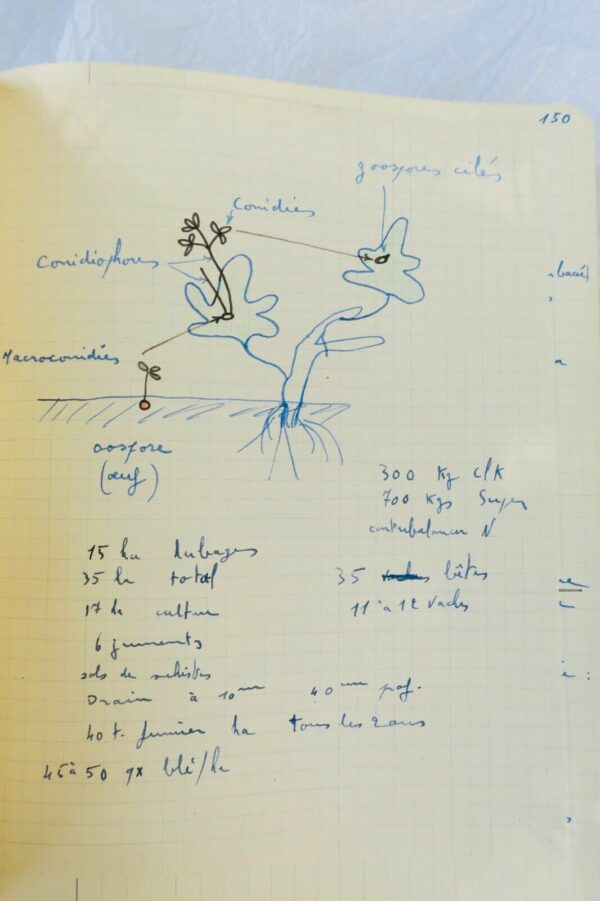 150
zoospores ciliés
Conidies
Conidiophores
Macroconidies
oospore
(œuf)
300 Kg ClK
700 Kgs Super
contrebalancer N
15 ha herbages
35 ha total
35 vaches bêtes
17 ha culture
11 à 12 vaches
6 juments
sols de schistes
Drain à 10 40 prof.
40 t. fumier ha tous les 2 ans
45 à 50 qx blé/ha